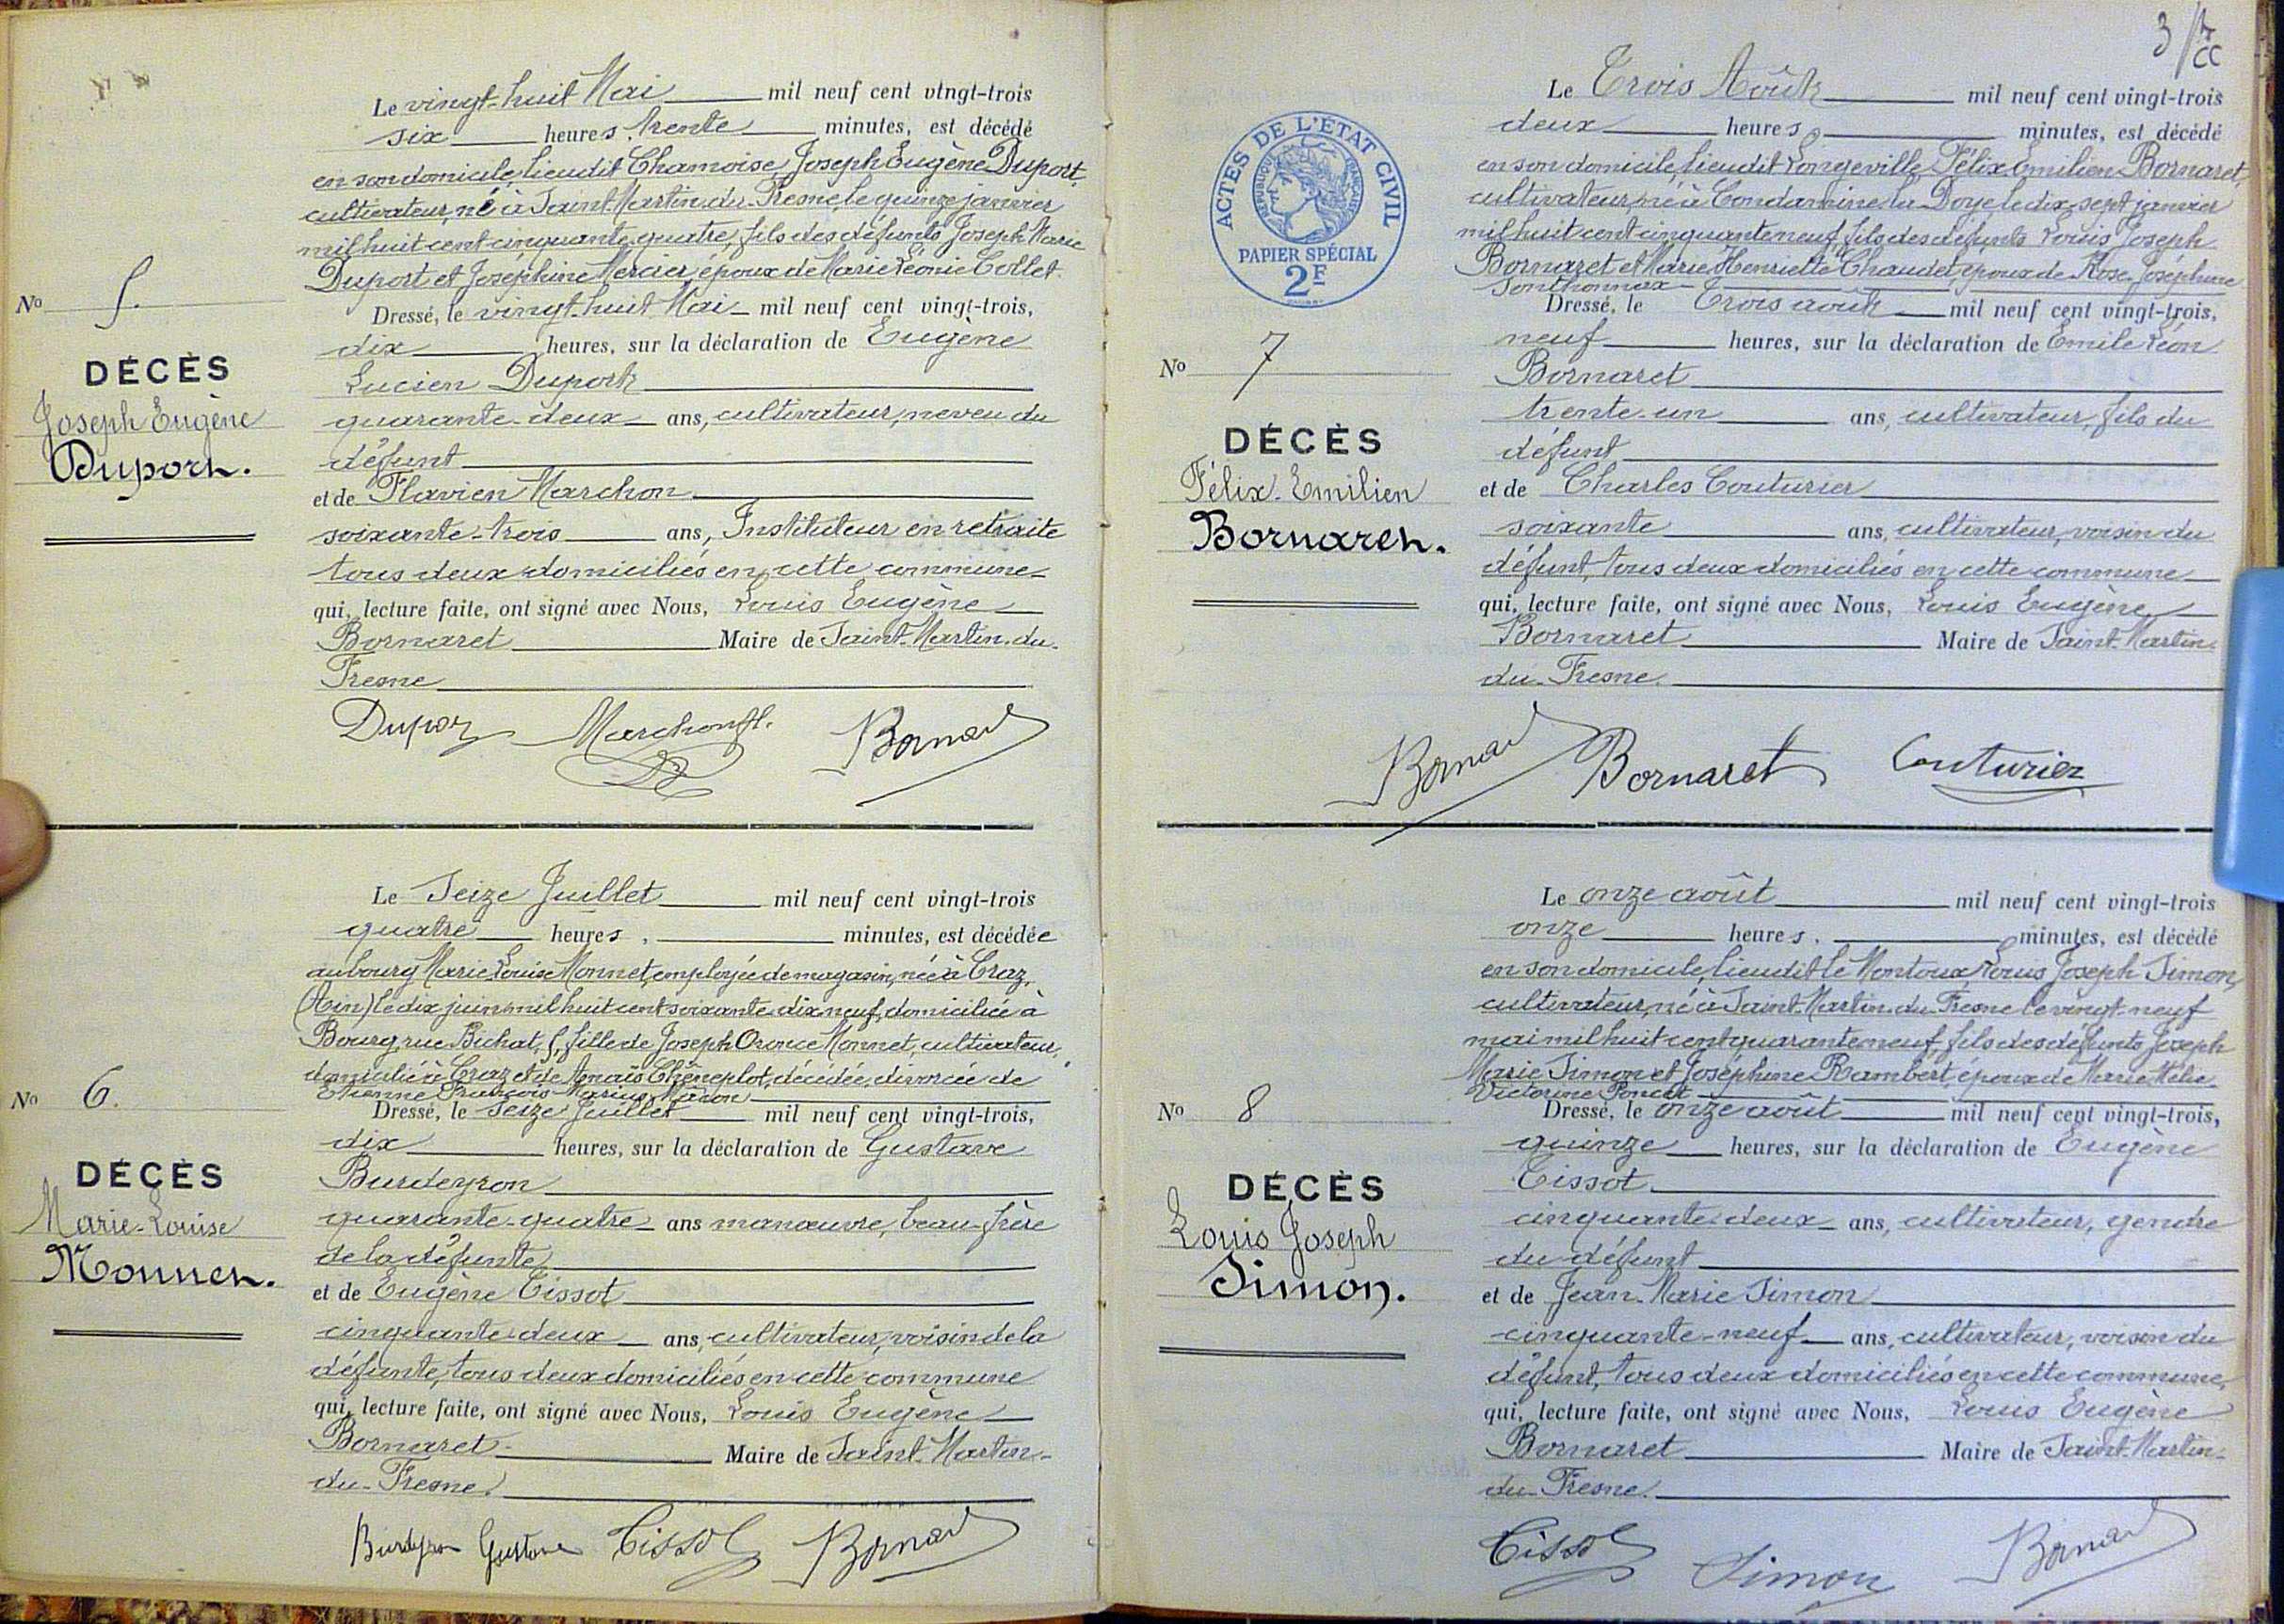 Le vingt-huit Mai mil neuf cent vingt-trois
six heures, trente minutes, est décédé
en son domicile, lieudit Chamoise, Joseph Eugène Duport,
cultivateur, né à Saint Martin-du-Fresne, le quinze janvier
mil huit cent cinquante quatre, fils des défunts Joseph Marie
Duport et Joséphine Mercier époux de Marie Léonie Collet.
No 5.
Dressé, le vingt-huit Mai mil neuf cent vingt-trois,
dix heures, sur la déclaration de Eugène
DÉCÈS
Lucien Duport
Joseph Eugène
quarante-deux ans, cultivateur, neveu du
Duport.
défunt
et de Flavien Marchon
soixante-trois ans, Instituteur en retraite
tous deux domiciliés en cette commune
qui, lecture faite, ont signé avec Nous, Louis Eugène
Bornaret Maire de Saint-Martin-du-
Fresne
Duport Marchon fl. Bornaret
Le Seize Juillet mil neuf cent vingt-trois
quatre heures, minutes, est décédée
au bourg Marie Louise Monnet, employée de magasin, née à Craz,
(Ain) le dix juin mil huit cent soixante dix neuf, domiciliée à
Bourg, rue Bichat, 5, fille de Joseph Oronce Monnet, cultivateur,
domicilié à Craz et de Anaïs Chêneplot, décédée, divorcée de
Etienne François Marius Mâcon
No 6.
Dressé, le Seize Juillet mil neuf cent vingt-trois,
dix heures, sur la déclaration de Gustave
DÉCÈS
Burdeyron
Marie-Louise
quarante-quatre ans manœuvre, beau-frère
Monnet.
de la défunte
et de Eugène Tissot
cinquante-deux ans, cultivateur, voisin de la
défunte, tous deux domiciliés en cette commune
qui, lecture faite, ont signé avec Nous, Louis Eugène
Bornaret Maire de Saint-Martin-
du-Fresne.
Burdeyron Gustave Tissot Bornaret
3
Le Trois Août mil neuf cent vingt-trois
deux heures, minutes, est décédé
en son domicile, lieudit Longeville Félix Emilien Bornaret,
cultivateur, né à Condamine la Doye, le dix-sept janvier
mil huit cent cinquante neuf, fils des défunts Louis Joseph
Bornaret et Marie Henriette Chaudet, époux de Rose Joséphine
Sonthonnax
ACTES DE L'ÉTAT CIVIL
RÉPUBLIQUE FRANÇAISE
PAPIER SPÉCIAL
2F
No 7
Dressé, le Trois août mil neuf cent vingt-trois,
neuf heures, sur la déclaration de Emile Léon
Bornaret
trente-un ans, cultivateur, fils du
DÉCÈS
défunt
Félix-Emilien
et de Charles Couturier
Bornaret.
soixante ans, cultivateur, voisin du
défunt, tous deux domiciliés en cette commune
qui, lecture faite, ont signé avec Nous, Louis Eugène
Bornaret Maire de Saint-Martin-
du-Fresne.
Bornaret Bornaret Couturier
Le onze août mil neuf cent vingt-trois
onze heures, minutes, est décédé
en son domicile, lieudit le Montoux, Louis Joseph Simon,
cultivateur, né à Saint-Martin-du-Fresne le vingt-neuf
mai mil huit cent quarante neuf, fils des défunts Joseph
Marie Simon et Joséphine Rambert, époux de Marie Mélie
Victorine Poncet
No 8
Dressé, le onze août mil neuf cent vingt-trois,
quinze heures, sur la déclaration de Eugène
DÉCÈS
Tissot
Louis Joseph
cinquante-deux ans, cultivateur, gendre
Simon.
du défunt
et de Jean-Marie Simon
cinquante-neuf ans, cultivateur, voisin du
défunt, tous deux domiciliés en cette commune,
qui, lecture faite, ont signé avec Nous, Louis Eugène
Bornaret Maire de Saint-Martin-
du-Fresne.
Tissot Simon Bornaret